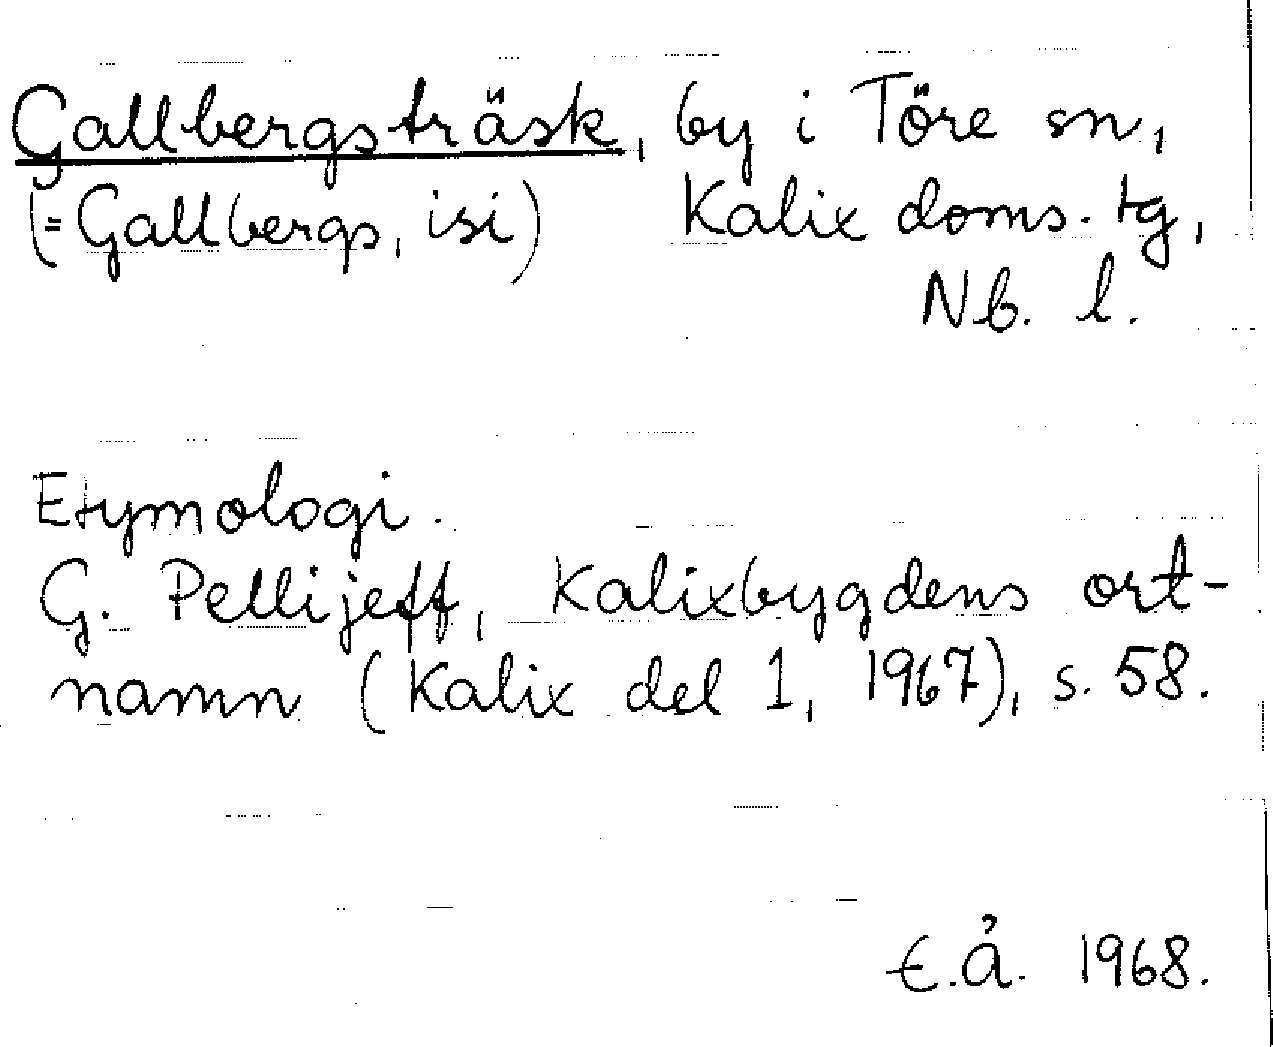 Gallbergsträsk, by i Töre sn,
(=Gallbergs, isi) Kalix doms. tg,
Nb. l.
Etymologi.
G. Pellijeff, Kalixbygdens ort-
namn (Kalix del 1, 1967), s. 58.
E.Å. 1968.